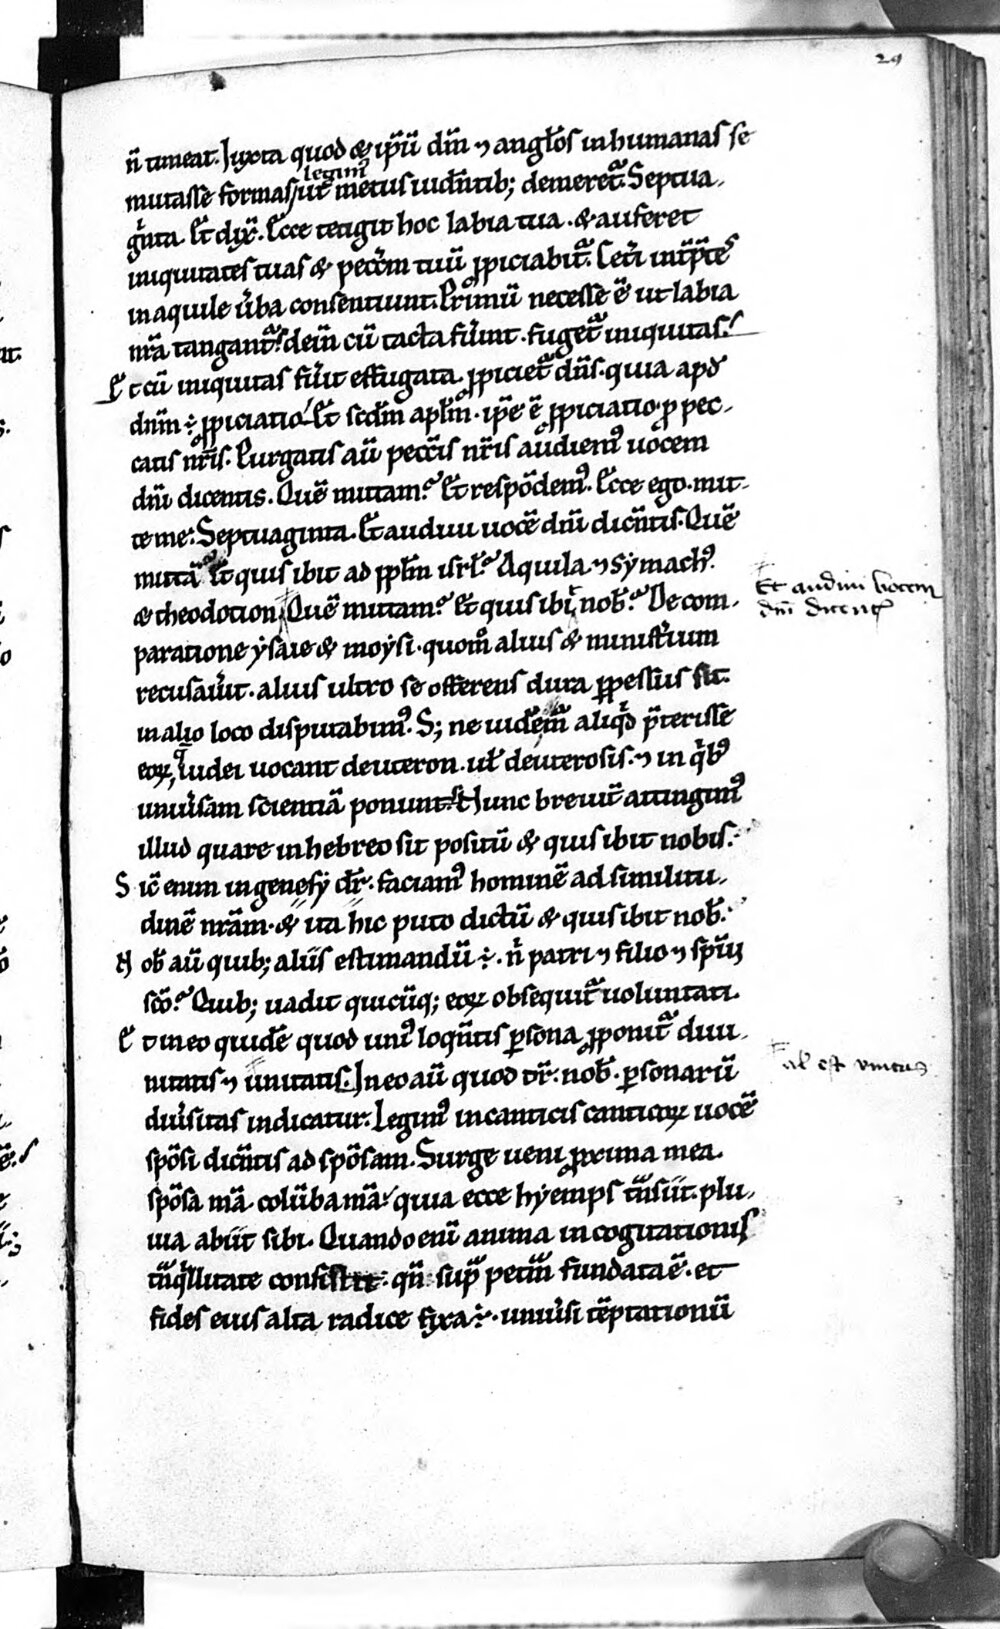 29
n̄ timeat. Iuxta quod & ip̄ū dn̄m ⁊ angl̄os in humanas se
legim᷒
mutasse formas/ ut metus uidn̄tib; demeret᷑. Septua-
gı̄nta. Et dix̄. Ecce tetigit hoc labia tua. & auferet
iniquitates tuas & pecc̄m tuū ꝓpiciabit᷑. Cet̄i int̄p̄tes
in aquile ūba consentiunt. Primū necesse ē ut labia
nr̄a tangant᷑. dein̄ cū tacta fuīnt. fuget᷑ iniquitas.
Et cū iniquitas fuīt effugata. ꝓpiciet᷑ dn̄s. quia apđ
dn̄m ÷ ꝓpiciatio. Et scd̄m apl̄m. ip̄e ē ꝓpiciatio ꝓ pec-
catis nr̄is. Purgatis aū pecc̄is nr̄is audiem᷒ uocem
dn̄i dicentis. Quē mittam. Et respōdem᷒. Ecce ego. mit-
te me. Septuaginta. Et audiui uocē dn̄i dicn̄tis. Quē
mittā Et quis ibit ad pp̄lm isrl̄. Aquila ⁊ Symach᷒.
Et audiui vocem
& theodotion. Quē mittam. Et quis ibit nob̄. De com-
dn̄i dicent
paratione ysaie & moysi. quom̊ alius & minist̄ium
recusaūit. alius ultro se offerens dura ꝑpessus sit.
in alio loco disputabim᷒. S; ne uidem̄ aliq̄d p̄terisse
eoꝝ, q̄ iudei uocant deuteron. ul̄ deuterosis. ⁊ in q̄b᷒
uniūsam scientiā ponunt. Nunc breuit̄ attingim᷒
illud quare in hebreo sit positū & quis ibit nobis.
Sic̄ enim in genesy dr̄. faciam᷒ hominē ad similitu-
dinē nr̄am. & ita hic puto dictū & quis ibit nob̄.
Nob̄ aū quib; aliis estimandū ÷. n̄ patri ⁊ filio ⁊ sp̄ui
scō. Quib; uadit quicūq; eoꝝ obsequit᷑ uoluntati.
Et in eo quidē quod uni᷒ loqn̄tis ꝑsona ꝓponit᷑ diui-
nitatis ⁊ unitatis. In eo aū quod dr̄. nob̄. ꝑsonarū
al̄ est vnitas
diūsitas indicatur. Legim᷒ in canticis canticoꝝ uocē
spōsi dicn̄tis ad spōsam. Surge ueni ꝓxima mea.
spōsa mā. colūba mā. quia ecce hyemps t̄nsiit. plu-
uia abiit sibi. Quando enī anima in cogitationis
t̄nq̄llitate consistit. qn̄ sup̄ pet̄m fundata ē. et
fides eius alta radice fixa ÷. uniūsi tēptationū